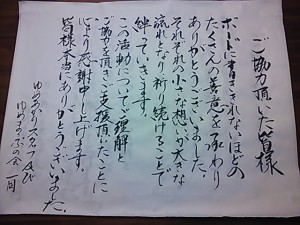 ご協力頂いた皆様
ボードに書ききれないほどの
たくさんの善意を承わり
ありがとうございました。
それぞれの小さな想いが大きな
流れとなり祈り続けることで
絆でいきます。
この活動についてご理解と
ご協力を頂きご支援頂いたことに
心より感謝申し上げます。
皆様本当にありがとうございました。
スタッフ及び
の会一同